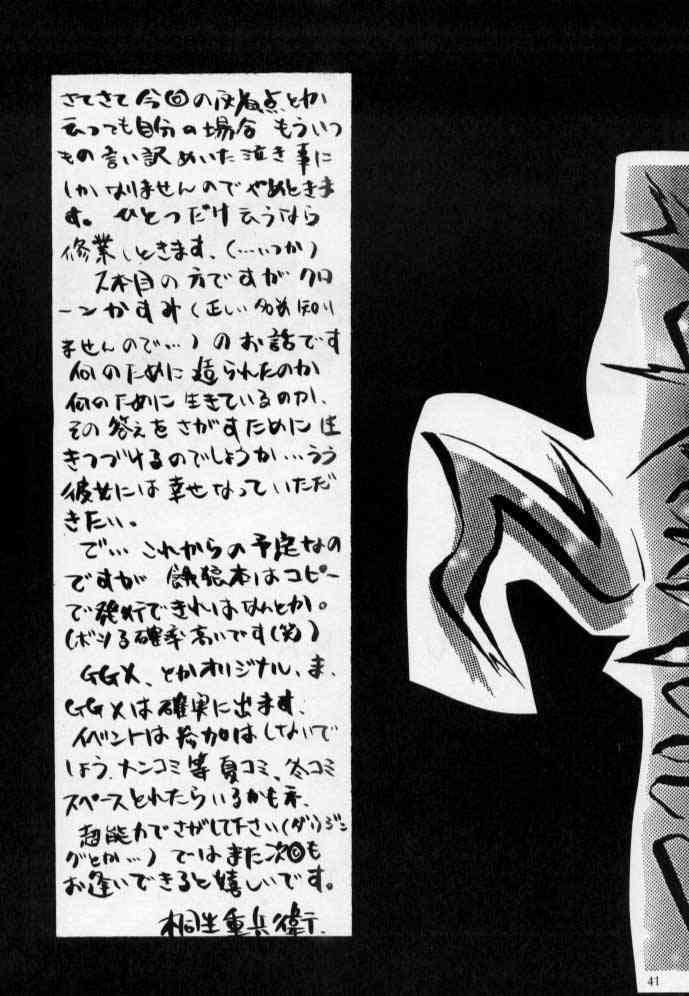 さてさて今回の反省点とか
云っても自分の場合もういつ
もの言い訳めいた泣き事に
しかなりませんのでやめときま
す。ひとつだけ云うなら
修業しときます、(…いつか)
2本目の方ですがクロ
ーンかすみ(正しい名前知り
ませんので…)のお話です
何のために造られたのか
何のために生きているのか、
その答えをさがすために生
きつづけるのでしょうか…うう
彼女には幸せなっていただ
きたい。
で…これからの予定なの
ですが餓狼本はコピー
で発行できればなんとか。
(ボツる確率高いです(笑)
GGX、とかオリジナル、ま、
GGXは確実に出ます、
イベントは参加はしないで
しょう、ナンコミ等夏コミ、冬コミ
スペースとれたらいるかもネ、
超能力でさがして下さい(ダウジン
グとか…)ではまた次回も
お逢いできると嬉しいです。
桐生重兵衛、
41